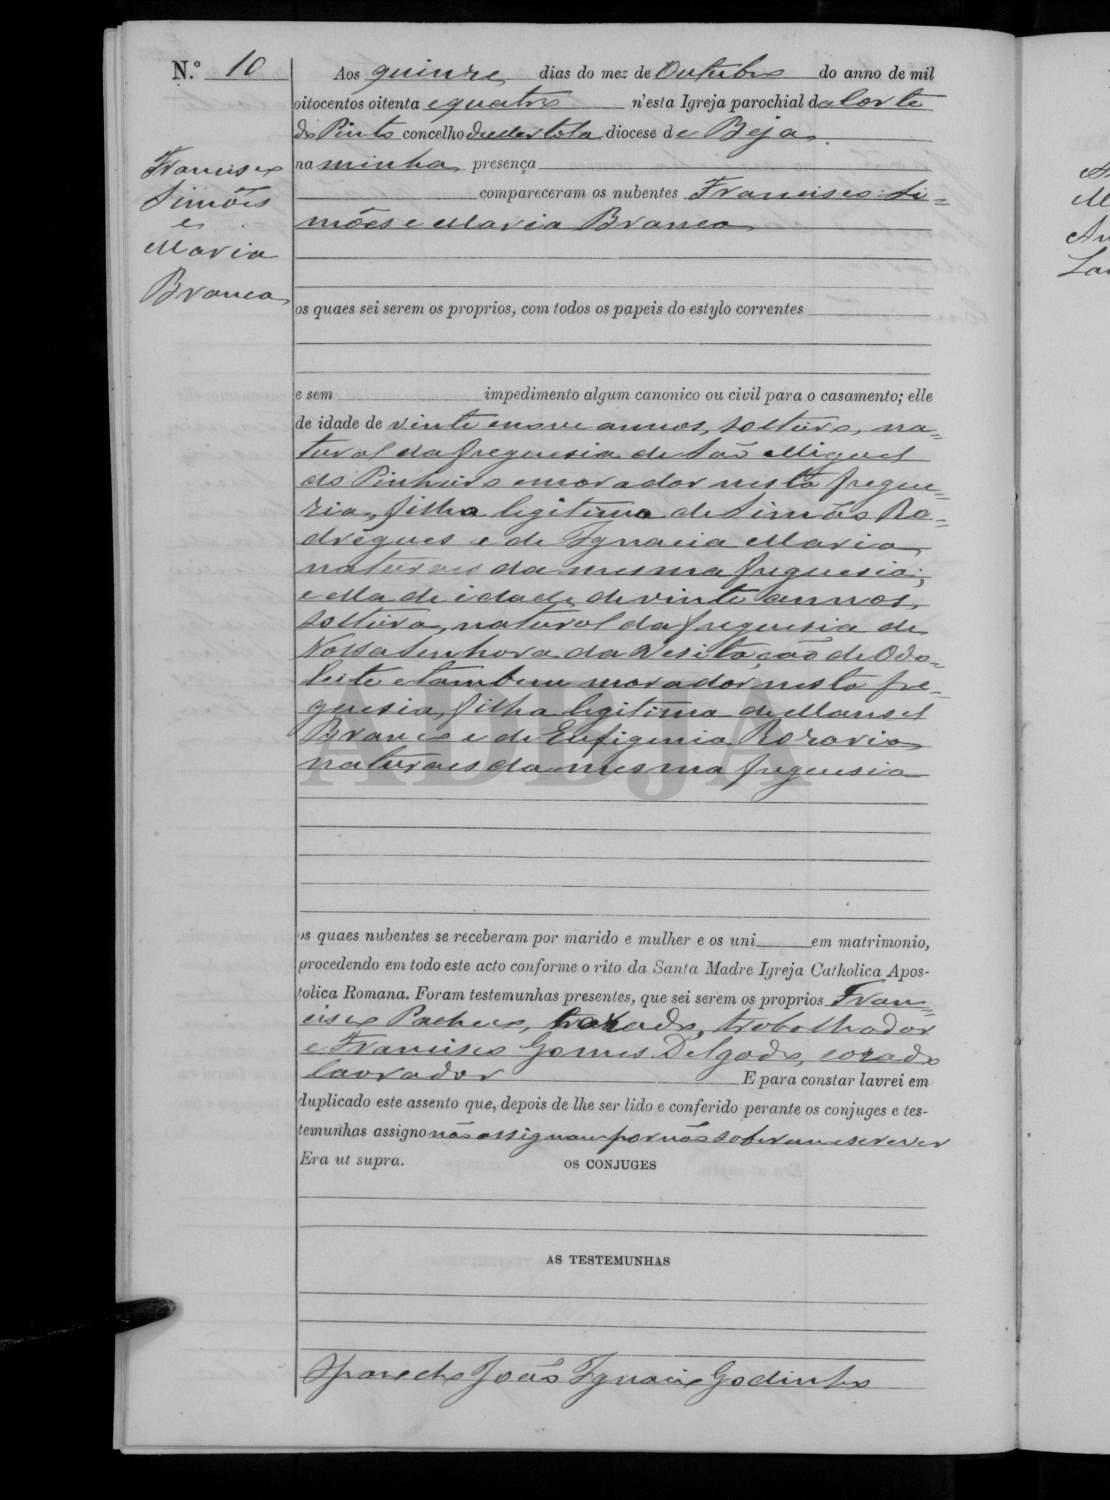 N.º 10
Francisco
Simões
e
Maria
Branca
Aos quinze dias do mez de Outubro do anno de mil
oitocentos oitenta e quatro n'esta Igreja parochial da Corte
do Pinto concelho de Mertola diocese de Beja
na minha presença
compareceram os nubentes Francisco Si=
mões e Maria Branca
os quaes sei serem os proprios, com todos os papeis do estylo correntes
e sem impedimento algum canonico ou civil para o casamento; elle
de idade de vinte e nove annos, solteiro, na=
tural da freguesia de São Miguel
do Pinheiro e morador nesta fregue=
zia, filho legitimo de Simão Ro=
drigues e de Ignacia Maria
naturaes da mesma freguesia;
e ella de idade de vinte annos,
solteira, natural da freguesia de
Nossa Senhora da Visitação de Odo=
leite e tambem morador nesta fre=
guesia, filha legitima de Manoel
Branco e de Eufigenia Rozaria
naturaes da mesma freguesia
os quaes nubentes se receberam por marido e mulher e os uni em matrimonio,
procedendo em todo este acto conforme o rito da Santa Madre Igreja Catholica Apos-
tolica Romana. Foram testemunhas presentes, que sei serem os proprios Fran=
cisco Pacheco, trabalhador
e Francisco Gomes Delgado, cazado
lavrador E para constar lavrei em
duplicado este assento que, depois de lhe ser lido e conferido perante os conjuges e tes-
temunhas assigno não assignam por não saberem escrever
Era ut supra.
OS CONJUGES
AS TESTEMUNHAS
O Parocho João Ignacio Godinho
ADBJA